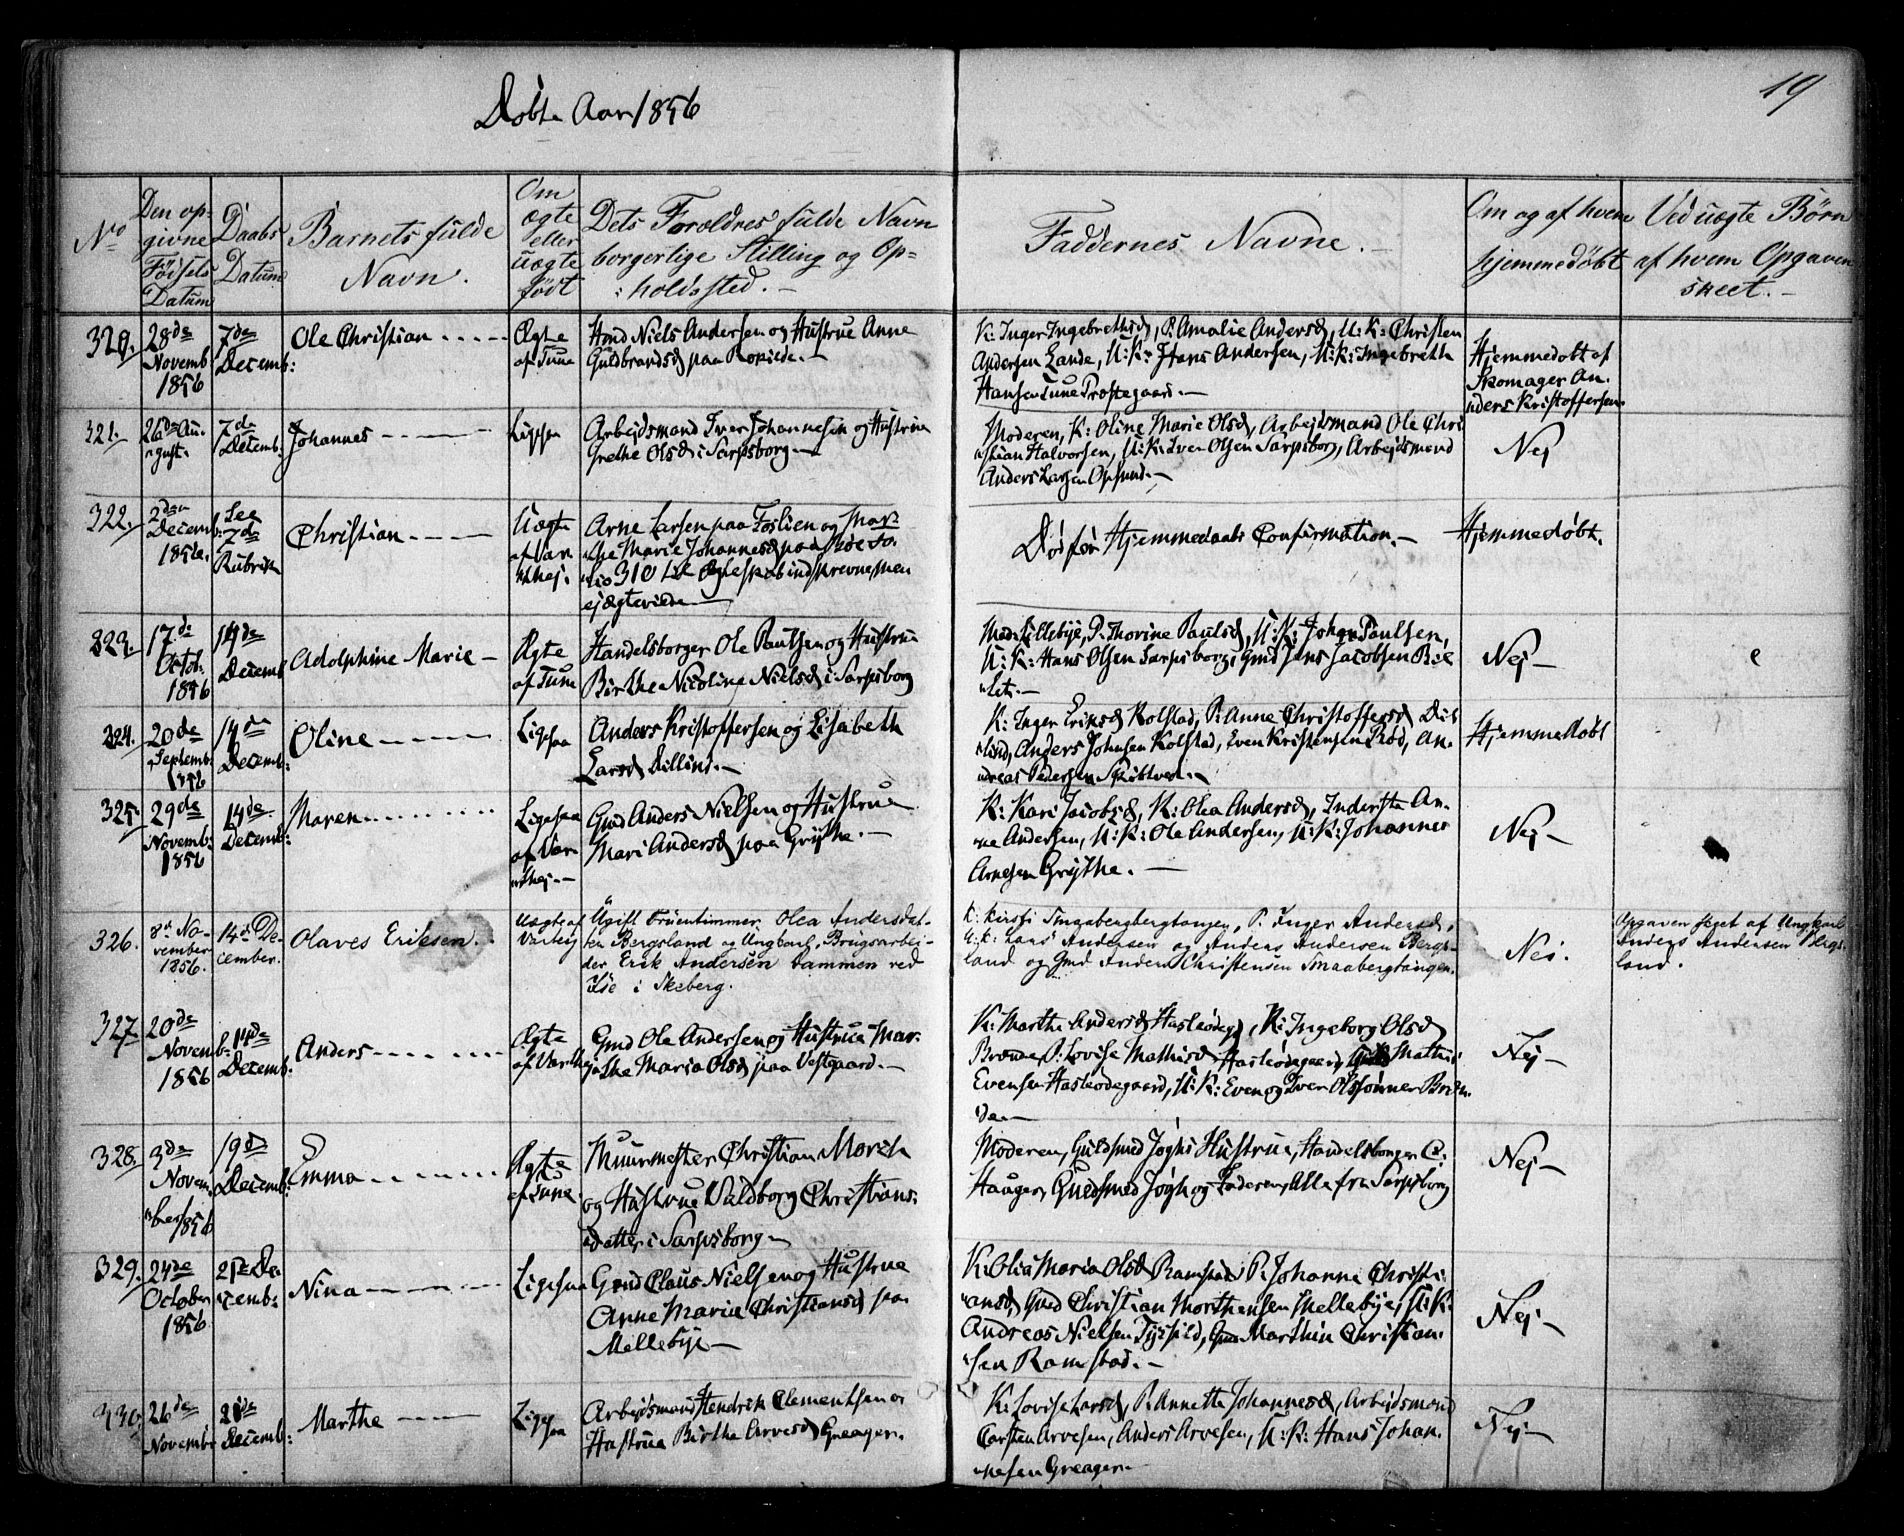 19
Døbte Aar 1856
No
Den op-
givne
Födsels
Datum
Daabs
Datum
Barnets fulde
Navn.
Om
ægte
eller
uægte
födt
Dets Forældres fulde Navn
borgerlige Stilling og Op-
holdssted. -
Faddernes Navne. -
Om og af hvem
hjemmedöbt
Ved uægte Börn
af hvem Opgaven
skeet. -
320.
28de
Novemb
1856
7de
Decemb:
Ole Christian
Ægte
af Tune
Niels Andersen og Hustrue Anne
Guldbrandsd paa
K: Inger Ingebrethsd, P. Amalie Andersd, U: K: Christen
Andersen Lande, U: K: Hans Andersen, U: K: Ingebreth
Hansen Tune Prestegaard. -
Hjemmedøbt af
Skomager An-
ders Kristoffersen
321.
26de Au-
gust.
7de
Decemb.
Johannes
Arbejdsmand Iver Johannesen og Hustrue
Grethe Olsd i Sarpsborg -
Moderen, K: Oline Marie Olsd, Arbejdsmand Ole Chri
stian Halvorsen, U: K: Iver Olsen Sarpsborg, Arbejdsmand
Anders Larsen Opsund. -
Nej
322.
2den
Decemb:
1856.
See
7de
Rubrik
Christian
Uægte
af Var
thej.
Arne Larsen paa Foslien og Mar-
the Marie Johannesd paa
310 indskrevne, men
ej ægteviede
Død før Hjemmedaabs Confirmation. -
Hjemmedøbt.
323.
17de
Octob.
1856
14de
Decemb
Adolphine Marie -
Ægte
af Tune
Handelsborger Ole Paulsen og Hustrue
Birthe Nicoline Nielsd i Sarpsborg
Mad: Lillebye, P. Thorine Paulsd, U: K: Johan Paulsen,
U: K: Hans Olsen Sarpsborg, Gmd Jens Jacobsen
Nej -
324.
20de
Septemb:
1856
14de
Decemb:
Oline
Ligesaa
Anders Kristoffersen og Lisabeth
Larsd Dilling. -
K: Inger Eriksd Kolstad, P: Anne Christoffersd Dil
ling, Anders Johnsen Kolstad, Even Kristensen Rød, An-
dreas Pedersen
Hjemmedøbt
325.
29de
Novemb:
1856
14de
Decemb:
Maren
Ligesaa
af Var
thej. -
Gmd Anders Nielsen og Hustrue
Mari Andersd paa Grythe. -
K: Kari Jacobsd, K: Olea Andersd, Inderste An-
ne Andersen, U: K: Ole Andersen, U: K: Johannes
Arnesen Grythe. -
Nej -
326.
8de No-
vember
1856.
14de De-
cember.
Olaves Eriksen.
Uægte af
Varteig
Ugift Fruentimmer Olea Andersdat-
ter Bergsland og Ungkarl, Brugsarbei-
der Erik Andersen Dammen ved
Ise i Skeberg.
K: Kirsti Smaabergbergtangen, P. Inger Andersd,
U: K: Hans Andersen og Anders Andersen Bergs-
land og Gmd Anders Christensen Smaabergtangen.
Nei.
Opgaven skeet af Ungkarl
Anders Andersen Bergs-
land.
327.
20de
Novemb:
1856
14de
Decemb.
Anders
Ægte
af Varthej
Gmd Ole Andersen og Hustrue Mar-
the Maria Olsd paa Vestgaard. -
K: Marthe Andersd Hasleødeg, K: Ingeborg Olsd
P: Lovise Mathisd Hasleødegaard, Gmd Mathis
Evensen Hasleødegaard, U: K: Even og Iver Olssønner
Nej -
328.
3de
Novem-
ber 1856
19de
Decemb:
Emma
Ægte
af Tune
Muurmester Christian Morch
og Hustrue Valdborg Christians-
datter i Sarpsborg -
Moderen, Guldsmed Jøghs Hustrue, Handelsborger C:
Hauger, Guldsmed Jøgh og Faderen, Alle fra Sarpsborg
Nej -
329.
24de
October
1856
21de De-
cemb:
Nina
Ligesaa
Gmd Claus Nielsen og Hustrue
Anne Maria Christiansd paa
Mellebye -
K: Olia Maria Olsd Ramstad P. Johanne Christi-
ansd, Gmd Christian Morthensen Mellebye, U: K:
Andreas Nielsen, Gmd Marthin Christian-
sen Ramstad. -
Nej -
330.
26de
Novembr
21de
Decemb:
Marthe
Ligesaa
Arbejdsmand Hendrik Clementsen o
Hustrue Birthe Arvesd Greager.
K: Lovise Larsd, P: Annette Johannesd, Arbejdsmand
Carsten Arvesen, Anders Arvesen, U: K: Hans Johan-
nesen Greager. -
Nej -